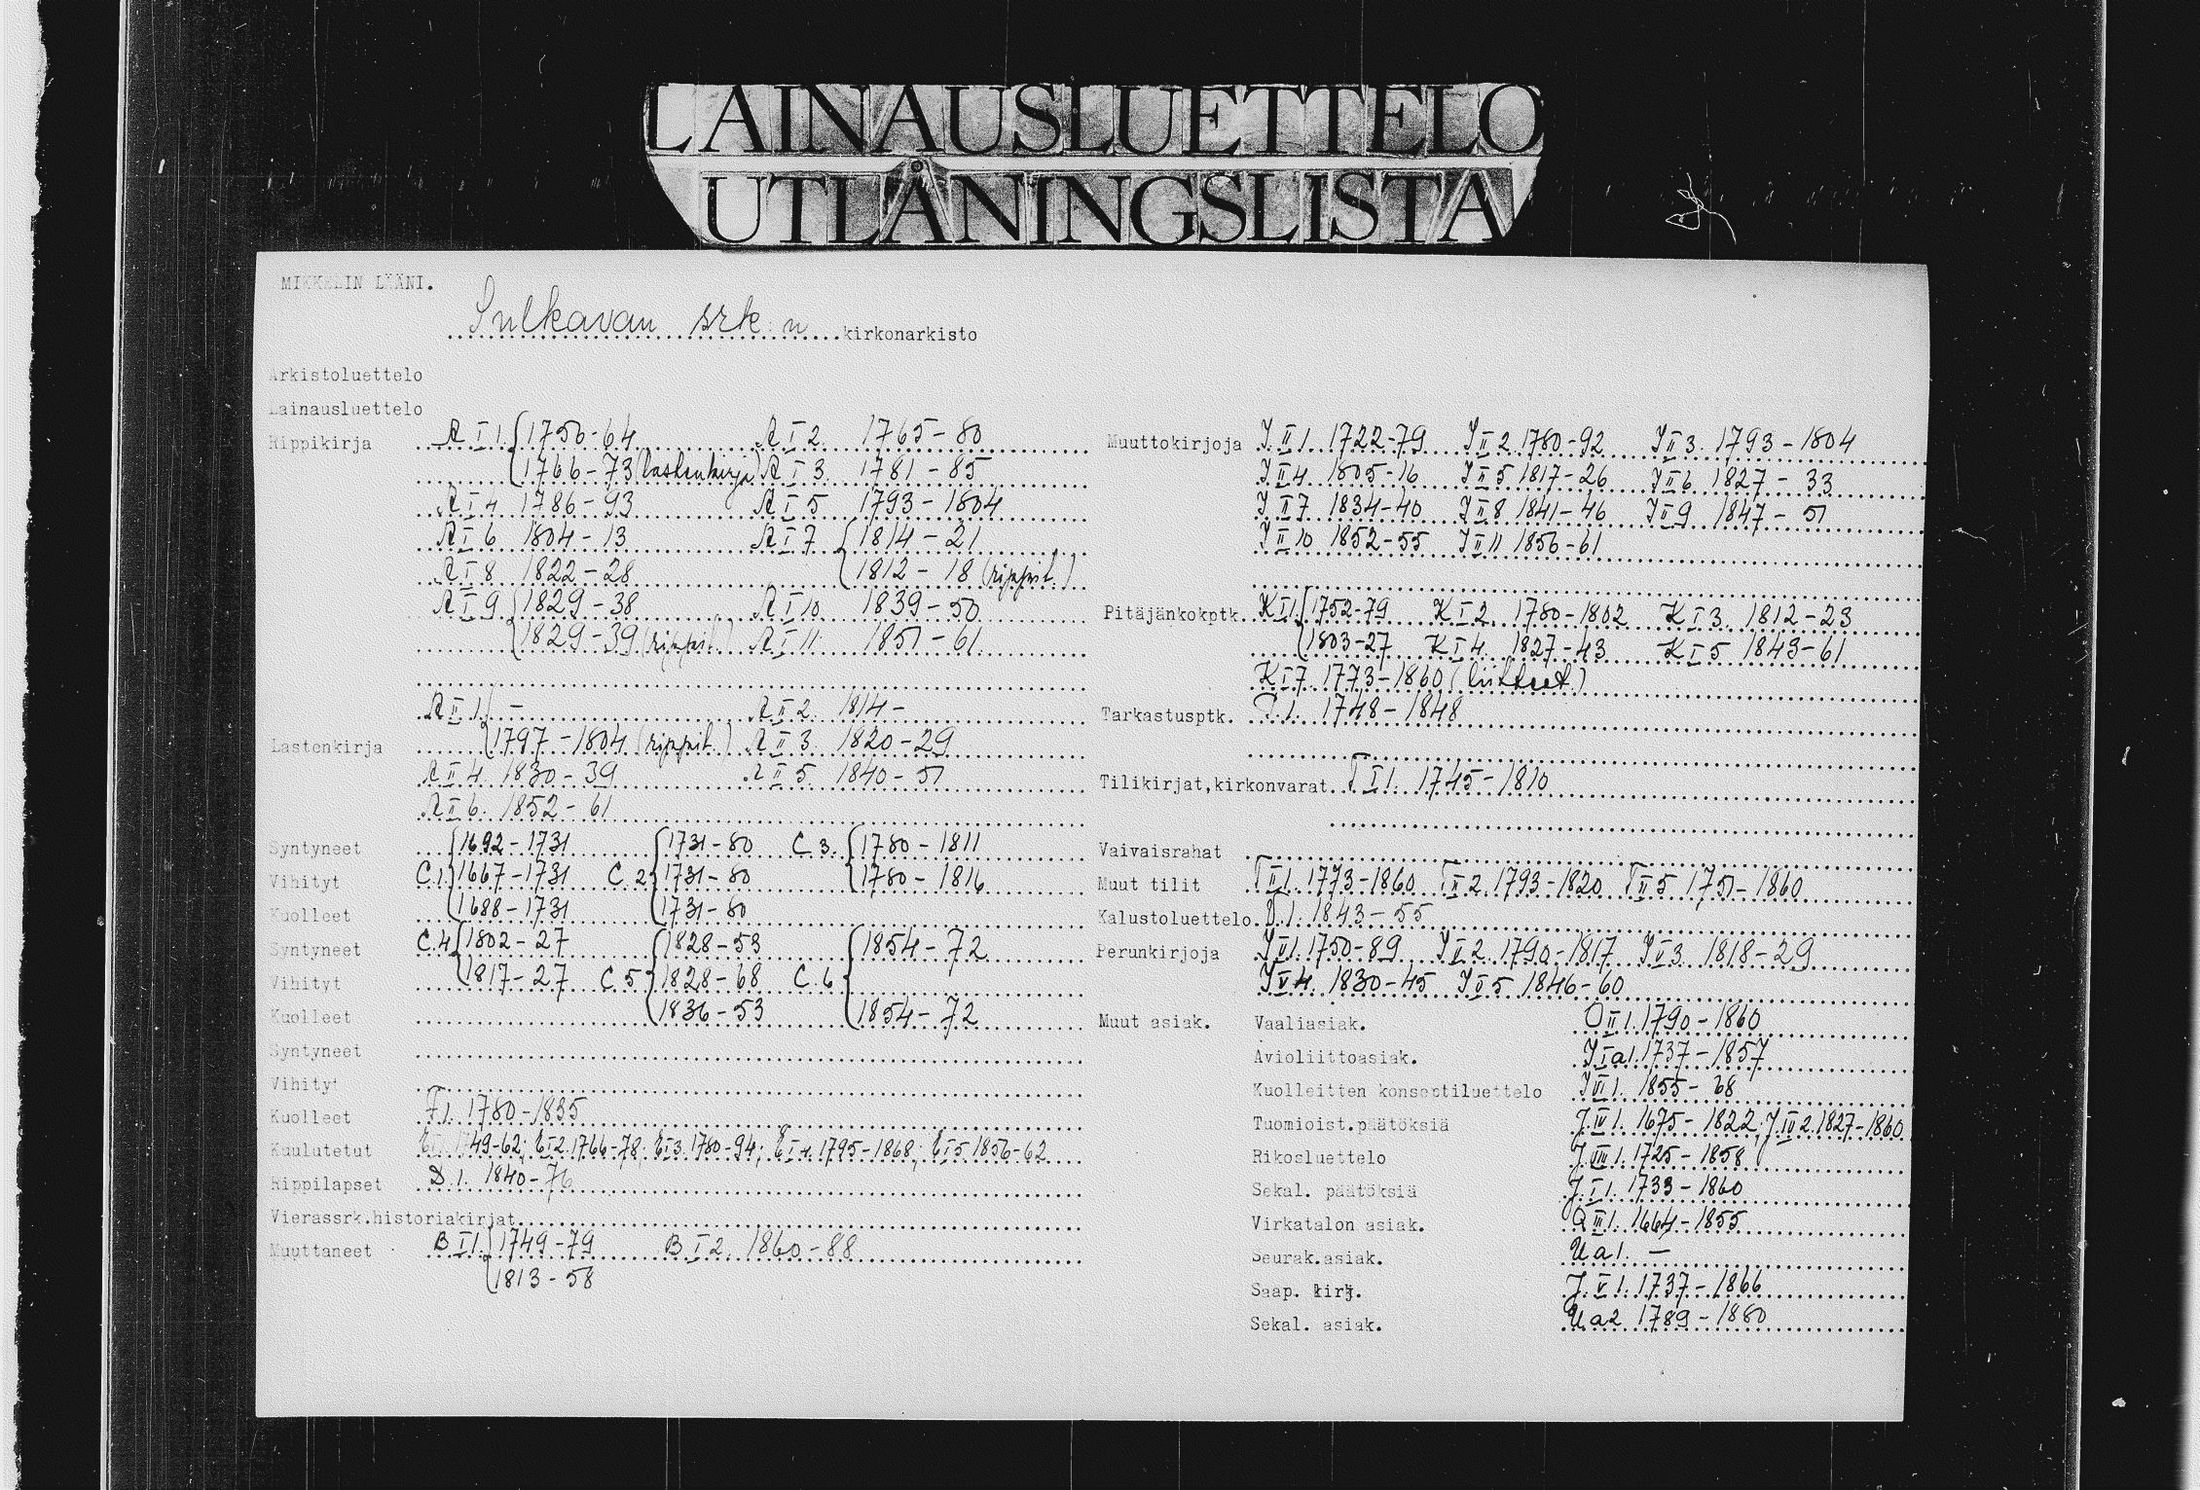 LAINAUSLUETTELO
UTLÅNINGSLISTA
MIKKELIN LÄÄNI.
Sulkavan srk:n kirkonarkisto
Arkistoluettelo
Lainausluettelo
Rippikirja A I 1. 1756-64 A I 2. 1765-80
1766-73 (lastenkirja) A I 3. 1781-85
A I 4 1786-93 A I 5 1793-1804
A I 6 1804-13 A I 7 1814-21
A I 8 1822-28 1812-18 (rippil.)
A I 9 1829-38 A I 10. 1839-50
1829-39 (rippil.) A I 11. 1851-61
A II 1. - A II 2. 1814-
Lastenkirja 1797-1804 (rippil.) A II 3. 1820-29
A II 4. 1830-39 A II 5 1840-51
A II 6. 1852-61
Syntyneet 1692-1731 1731-80 C.3. 1780-1811
Vihityt C.1. 1667-1731 C.2 1731-80 1780-1816
Kuolleet 1688-1731 1731-80
Syntyneet C.4 1802-27 1828-53 1854-72
Vihityt 1817-27 C.5 1828-68 C.6
Kuolleet 1836-53 1854-72
Syntyneet
Vihityt
Kuolleet F1. 1780-1835
Kuulutetut 49-62; E I 2. 1766-78; E I 3. 1780-94; E I 4. 1795-1868; E I 5. 1856-62
Rippilapset D.1. 1840-76
Vierassrk.historiakirjat
Muuttaneet B I 1. 1749-79 B I 2. 1860-88
1813-58
Muuttokirjoja J II 1. 1722-79 J II 2. 1780-92 J II 3. 1793-1804
J II 4 1805-16 J II 5 1817-26 J II 6. 1827-33
J II 7 1834-40 J II 8 1841-46 J II 9 1847-51
J II 10 1852-55 J II 11 1856-61
Pitäjänkokptk. K I 1. 1752-79 K I 2. 1780-1802 K I 3. 1812-23
1803-27 K I 4. 1827-43 K I 5 1843-61
K I 7. 1773-1860 (liitteet)
Tarkastusptk. 1. 1748-1848
Tilikirjat,kirkonvarat. T I 1. 1745-1810
Vaivaisrahat
Muut tilit T II 1. 1773-1860 T II 2. 1793-1820 T II 5 1751-1860
Kalustoluettelo 1. 1843-55
Perunkirjoja 1750-89 1790-1817 1818-29
1830-45 1846-60
Muut asiak. Vaaliasiak. O II 1. 1790-1860
Avioliittoasiak. J I a 1. 1737-1857
Kuolleitten konseptiluettelo 1855-68
Tuomioist.päätöksiä J. IV 1. 1675-1822 J. IV 2. 1827-1860
Rikosluettelo 1725-1858
Sekal. päätöksiä J. I 1. 1733-1860
Virkatalon asiak. 1664-1855
Seurak.asiak. U a 1. -
Saap. kirj. J. V 1. 1737-1866
Sekal. asiak. U a 2 1789-1880